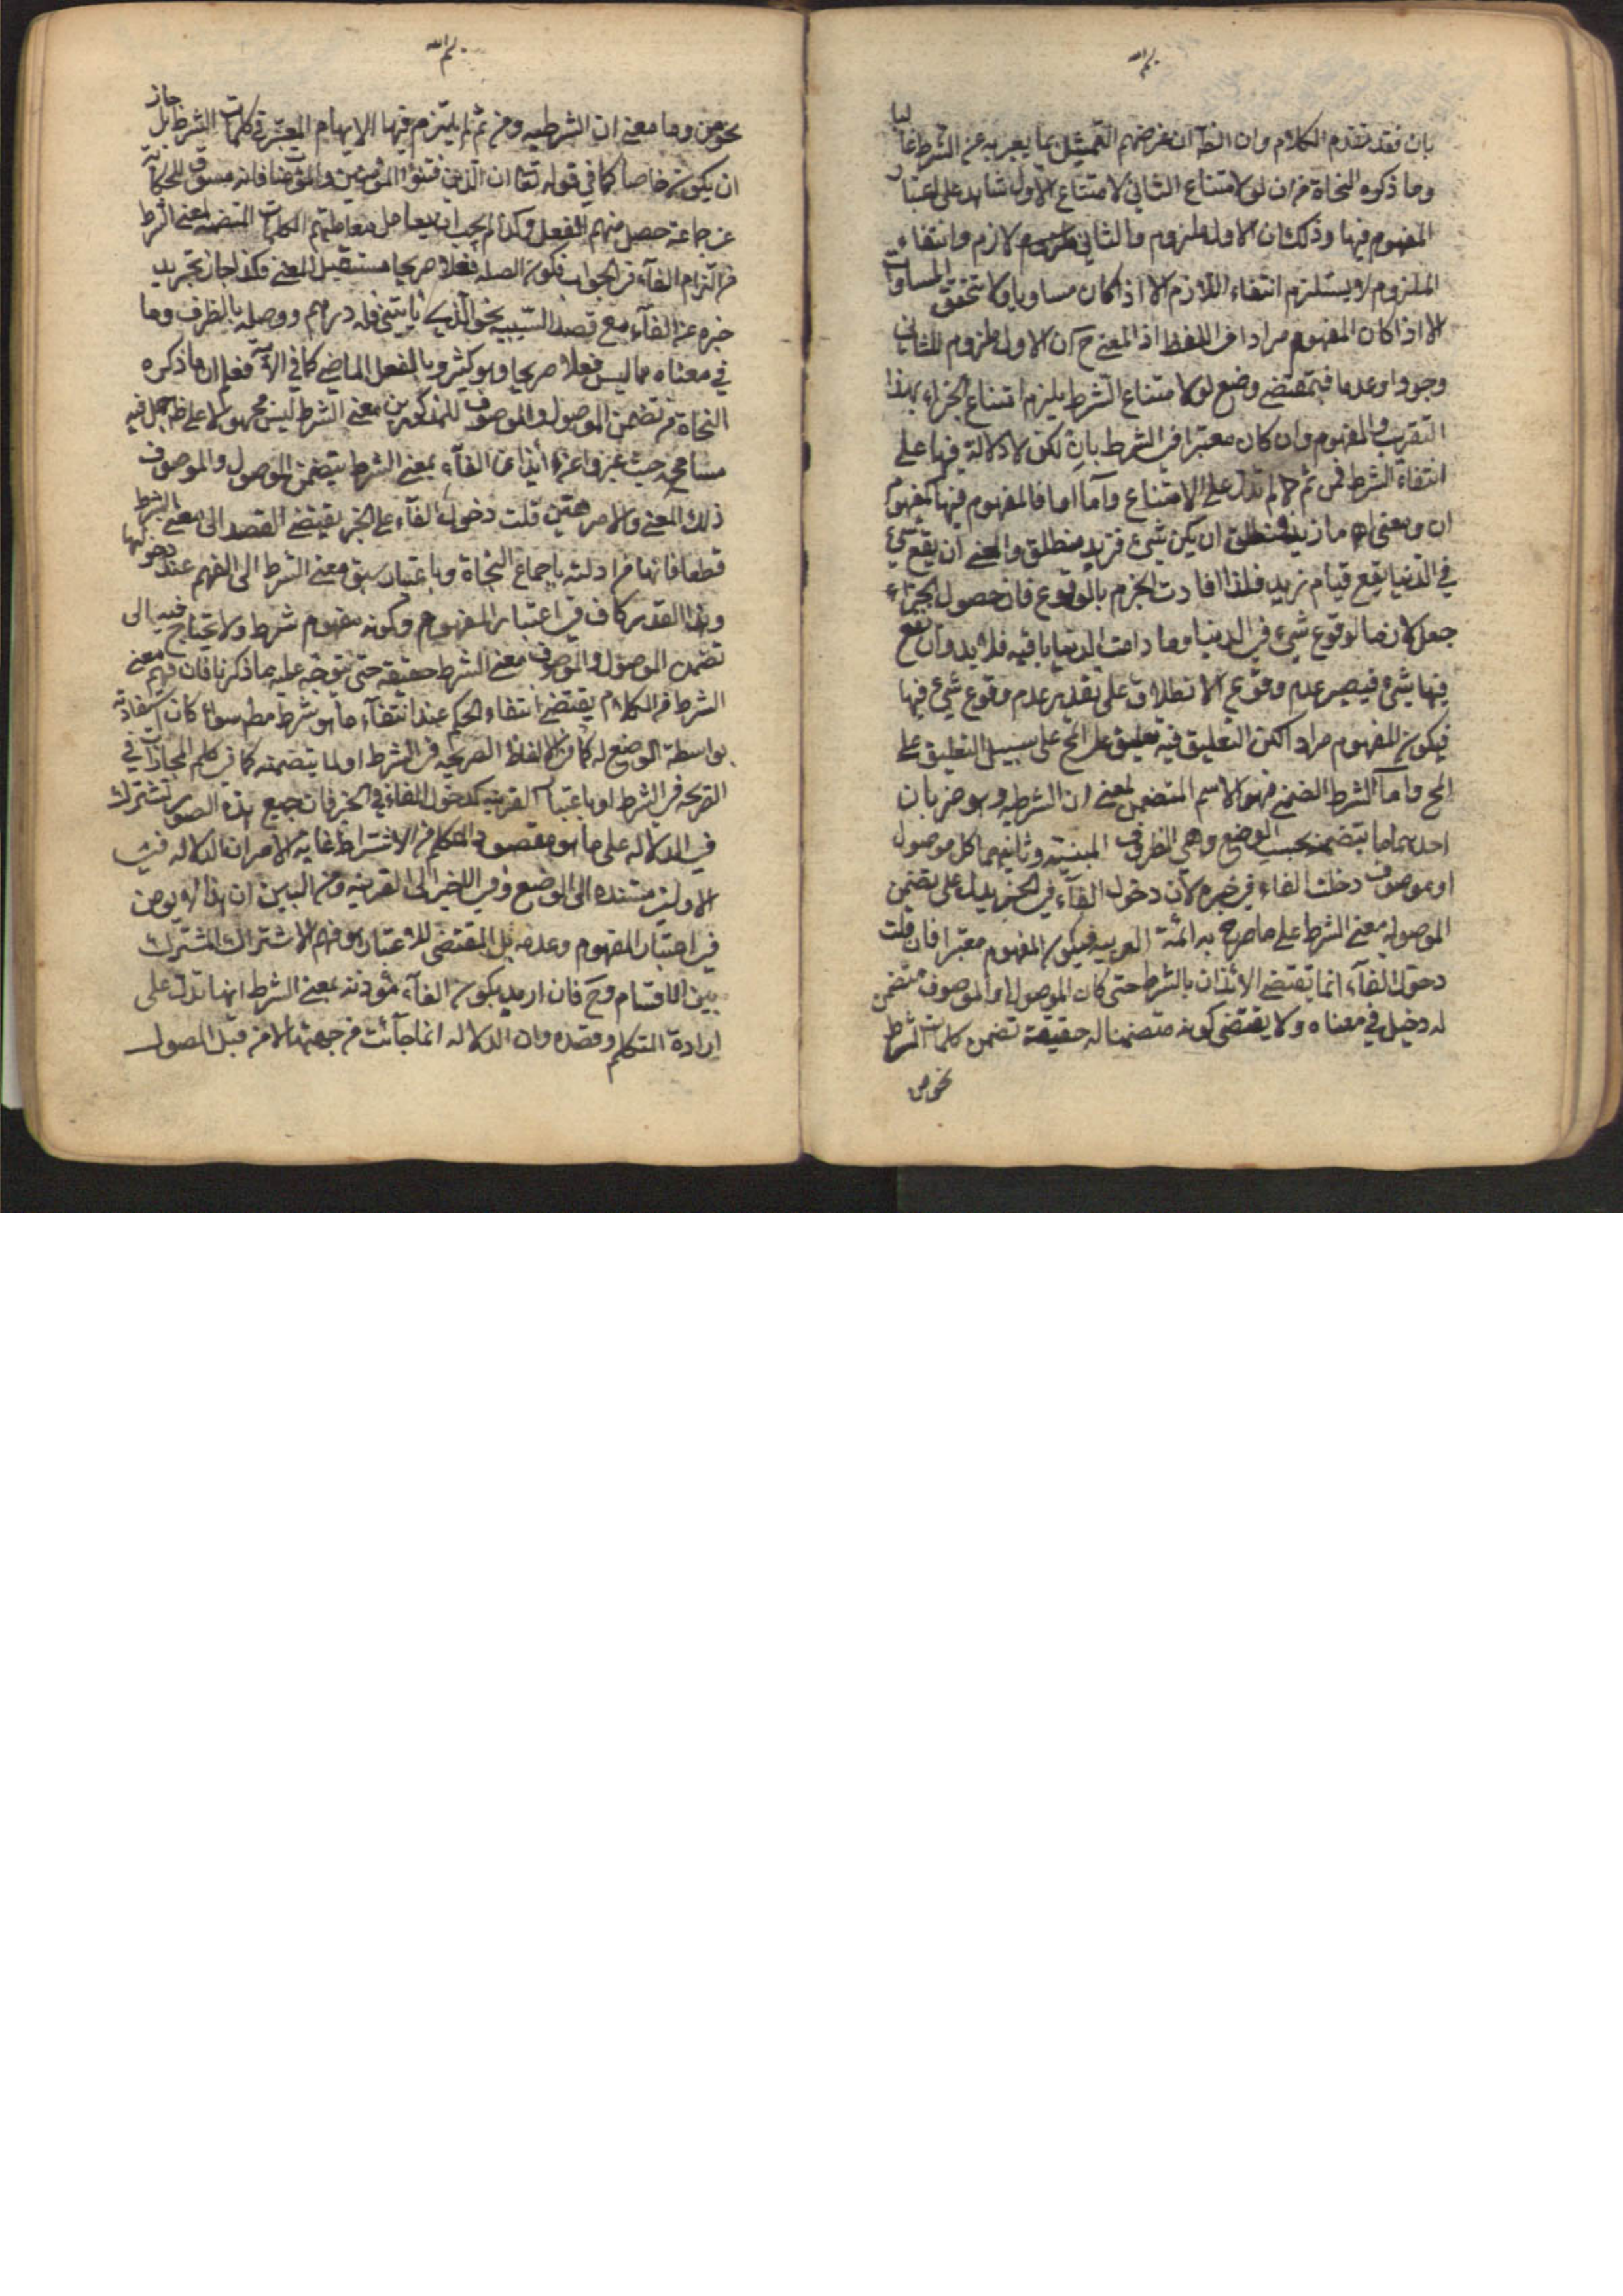 بسم الله
بان فقد تقدم الكلام وان الظ ان غرضهم التمثيل بما يعبر به عن الشرط غالبا
وما ذكروه النحاة من ان لو لامتناع الثاني لامتناع الاول شاهد على اعتبار
المفهوم فيها وذلك ان الاول ملزوم والثاني لازم وانتفاء
الملزوم لا يستلزم انتفاء اللازم الا اذا كان مساويا ولا تتحقق المساوات
الا اذا كان المفهوم مرادا من اللفظ اذ المعنى ح ان الاول ملزوم للثاني
وجودا وعدما فبمقتضى وضع لو لامتناع الشرط يلزم امتناع الجزاء بهذا
التقريب والمفهوم وان كان معتبرا في الشرط بان لكن لا دلالة فيها على
انتفاء الشرط فمن ثم لم تدل على الامتناع واما اما فالمفهوم فيها كمفهوم
ان ومعنى اما زيد فمنطلق ان يكن شيء فزيد منطلق والمعنى ان يقع شيء
في الدنيا يقع قيام زيد فلذا افادت الجزم بالوقوع فان حصول الجزاء
جعل لازما لوقوع شيء في الدنيا وما دامت الدنيا باقية فلا بد وان يقع
فيها شيء فيصير عدم وقوع الانطلاق على تقدير عدم وقوع شيء فيها
فيكون المفهوم مرادا لكن التعليق فيه تعليق على المح على سبيل التعليق على
المح واما الشرط الضمني فهو الاسم المتضمن لمعنى ان الشرطية وهو ضربان
احدهما ما يتضمنه بحسب الوضع وهي الظروف المبنية وثانيهما كل موصول
او موصوف دخلت الفاء في خبره لان دخول الفاء في الخبر يدل على تضمن
الموصول معنى الشرط على ما صرح به ائمة العربية فيكون المفهوم معتبرا فان قلت
دخول الفاء انما تقتضي الائذان بالشرط حتى كان الموصول او الموصوف متضمن
له دخيل في معناه ولا يقتضي كونه متضمنا له حقيقة تضمن كلمات الشرط
نحو من
بسم الله
نحو من وما معنى ان الشرطية ومن ثم لم يلتزم فيها الابهام المعتبر في كلمات الشرط بل جاز
ان يكون خاصا كما في قوله تعا ان الذين فتنوا المؤمنين والمؤمنات فانه مسوق للحكاية
عن جماعة حصل منهم الفعل وكذا لم يجب ان يعامل معاملتهم الكلمات المتضمنة لمعنى الشرط
من التزام الفاء في الجواب وكون الصلة فعلا صريحا مستقبل المعنى وكذا جاز تجريد
خبره عن الفاء مع قصد السببية نحو الذي ياتيني فله درهم ووصله بالظرف وما
في معناه مما ليس فعلا صريحا وهو كثير وبالفعل الماضي كما في الآية فعلم ان ما ذكره
النحاة من تضمن الموصول والموصوف للمذكورين معنى الشرط ليس محمولا على ظ بل فيه
مسامحة حيث عبروا عن ايذان الفاء بمعنى الشرط بتضمن الموصول والموصوف
ذلك المعنى والامر هين قلت دخول الفاء على الخبر يقتضي القصد الى معنى الشرط
قطعا فانها من ادلته باجماع النحاة وباعتبار سبق معنى الشرط الى الفهم عند دخولها
وهذا القدر كاف في اعتبار المفهوم وكونه مفهوم شرط ولا يحتاج فيه الى
تضمن الموصول والموصوف معنى الشرط حقيقة حتى يتوجه عليه ما ذكرنا فان فهم معنى
الشرط من الكلام يقتضي انتفاء الحكم عند انتفاء ما هو شرط مط سواء كان استفادته
بواسطة الوضع له كما في الالفاظ الصريحة في الشرط او لما يتضمنه كما في كلم المجازات في
الصريحة في الشرط او باعتبار القرينة كدخول الفاء في الخبر فان جميع هذه الصور تشترك
في الدلالة على ما هو مقصود المتكلم من الاشتراط غاية الامر ان الدلالة في
الاولين مستندة الى الوضع وفي الاخير الى القرينة ومن البين ان هذا لا يوهن
في اعتبار المفهوم وعدمه بل المقتضى للاعتبار هو فهم الاشتراك المشترك
بين الاقسام وح فان اريد بكون الفاء مؤذنة بمعنى الشرط انها تدل على
ارادة المتكلم وقصده وان الدلالة انما جائت من جهتها لا من قبل الموصول